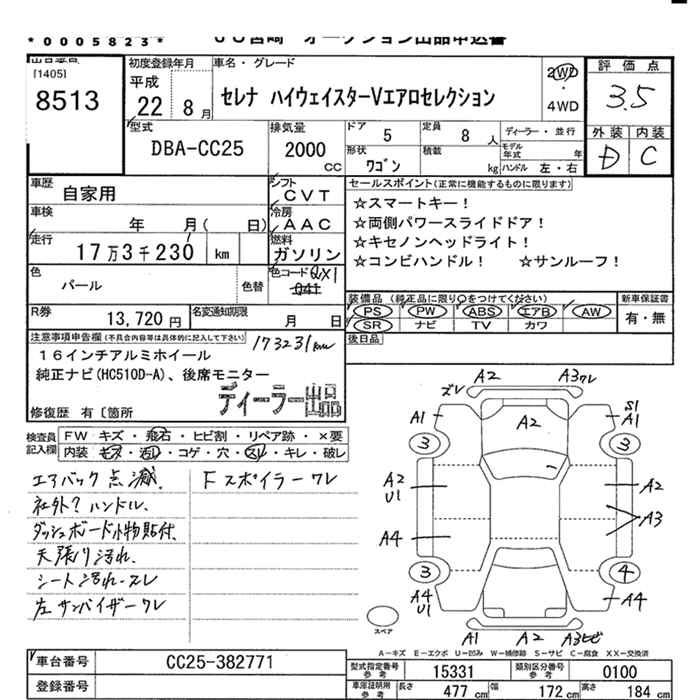 *0005823*
ＪＵ宮崎 オークション出品申込書
出品番号
[1405]
8513
初度登録年月
平成
22 8月
車名・グレード
セレナ ハイウェイスターVエアロセレクション
2WD
・
4WD
評価点
3.5
外装 内装
D C
型式
DBA-CC25
排気量
2000
CC
ドア 5
定員 8 人
ディーラー・並行
形状 ワゴン
積載 kg
モデル年式 年
ハンドル 左・右
車歴 自家用
シフト CVT
セールスポイント(正常に機能するものに限ります)
☆スマートキー！
☆両側パワースライドドア！
☆キセノンヘッドライト！
☆コンビハンドル！ ☆サンルーフ！
車検 年 月( 日)
冷房 AAC
走行 17万3千230 km
燃料 ガソリン
色 パール
色替
色コード QX1
041
装備品(純正品に限り○をつけてください)
PS PW ABS エアB AW
SR ナビ TV カワ
新車保証書
有・無
R券 13,720円
名変通知期限 月 日
後日品
注意事項申告欄(不具合内容等は具体的に記入して下さい)
173231km
16インチアルミホイール
純正ナビ(HC510D-A)、後席モニター
ディーラー出品
修復歴 有〔箇所
検査員記入欄
FW キズ・飛石・ヒビ割・リペア跡・×要
内装 キズ・汚れ・コゲ・穴・スレ・キレ・破レ
エアバック点滅.
Fスポイラーワレ
社外?ハンドル.
ダッシュボード小物貼付.
天張り汚れ.
シート汚れ・スレ
左サンバイザーワレ
ズレ A2 A3ワレ
A1 A2 S1
A1
3 3
A2
U1
A2
A3
A4
3 4
A4
U1
A4
スペア
A1 A2 A3ヒビ
A－キズ E－エクボ U－凹み W－補修跡 S－サビ C－腐食 XX－交換済
車台番号 CC25-382771
登録番号
型式指定番号
参考
15331
類別区分番号
参考
0100
車庫証明用
参考
長さ 477cm 幅 172cm 高さ 184cm